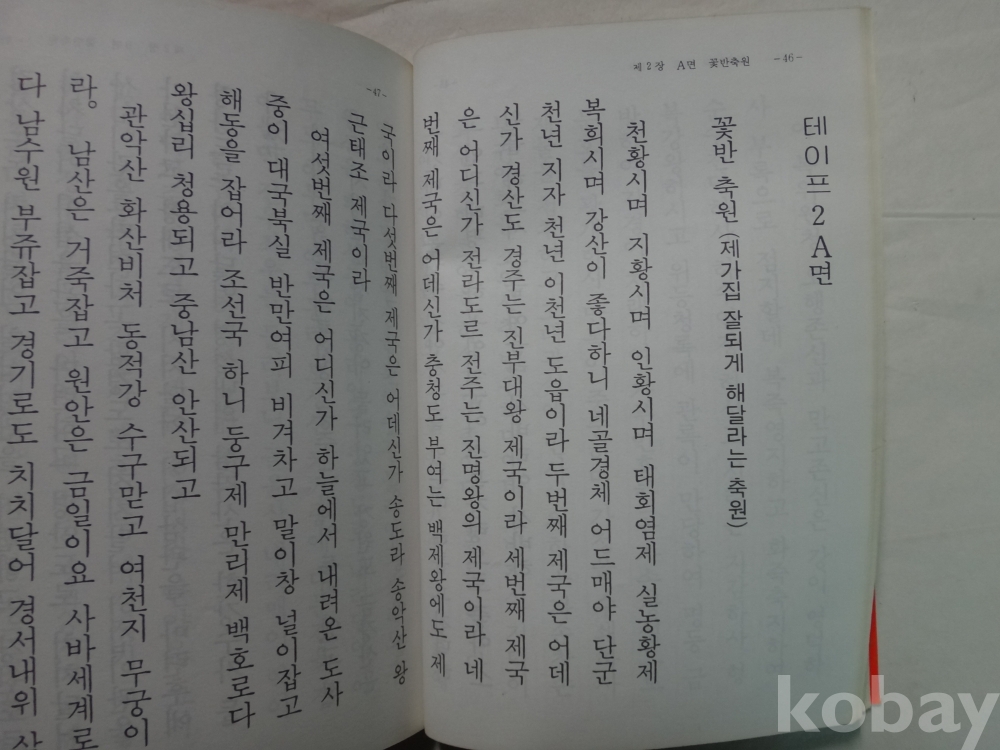 제2장 A면 꽃반축원 -46-
테이프 2 A면
꽃반 축원 (제가집 잘되게 해달라는 축원)
천황시며 지황시며 인황시며 태회염제 실농황제
복희시며 강산이 좋다하니 네골경체 어드매야 단군
천년 지자 천년 이천년 도읍이라 두번째 제국은 어데
신가 경산도 경주는 진부대왕 제국이라 세번째 제국
은 어디신가 전라도르 전주는 진명왕의 제국이라 네
번째 제국은 어데신가 충청도 부여는 백제왕에도 제
-47-
국이라 다섯번째 제국은 어데신가 송도라 송악산 왕
근태조 제국이라
여섯번째 제국은 어디신가 하늘에서 내려온 도사
중이 대국북실 반만여피 비겨차고 말이창 널이잡고
해동을 잡어라 조선국 하니 둥구제 만리제 백호로다
왕십리 청용되고 중남산 안산되고
관악산 화산비처 동적강 수구맏고 여천지 무궁이
라. 남산은 거죽잡고 원안은 금일이요 사바세계로
다 남수원 부쥬잡고 경기로도 치치달어 경서내위 삼
kobay